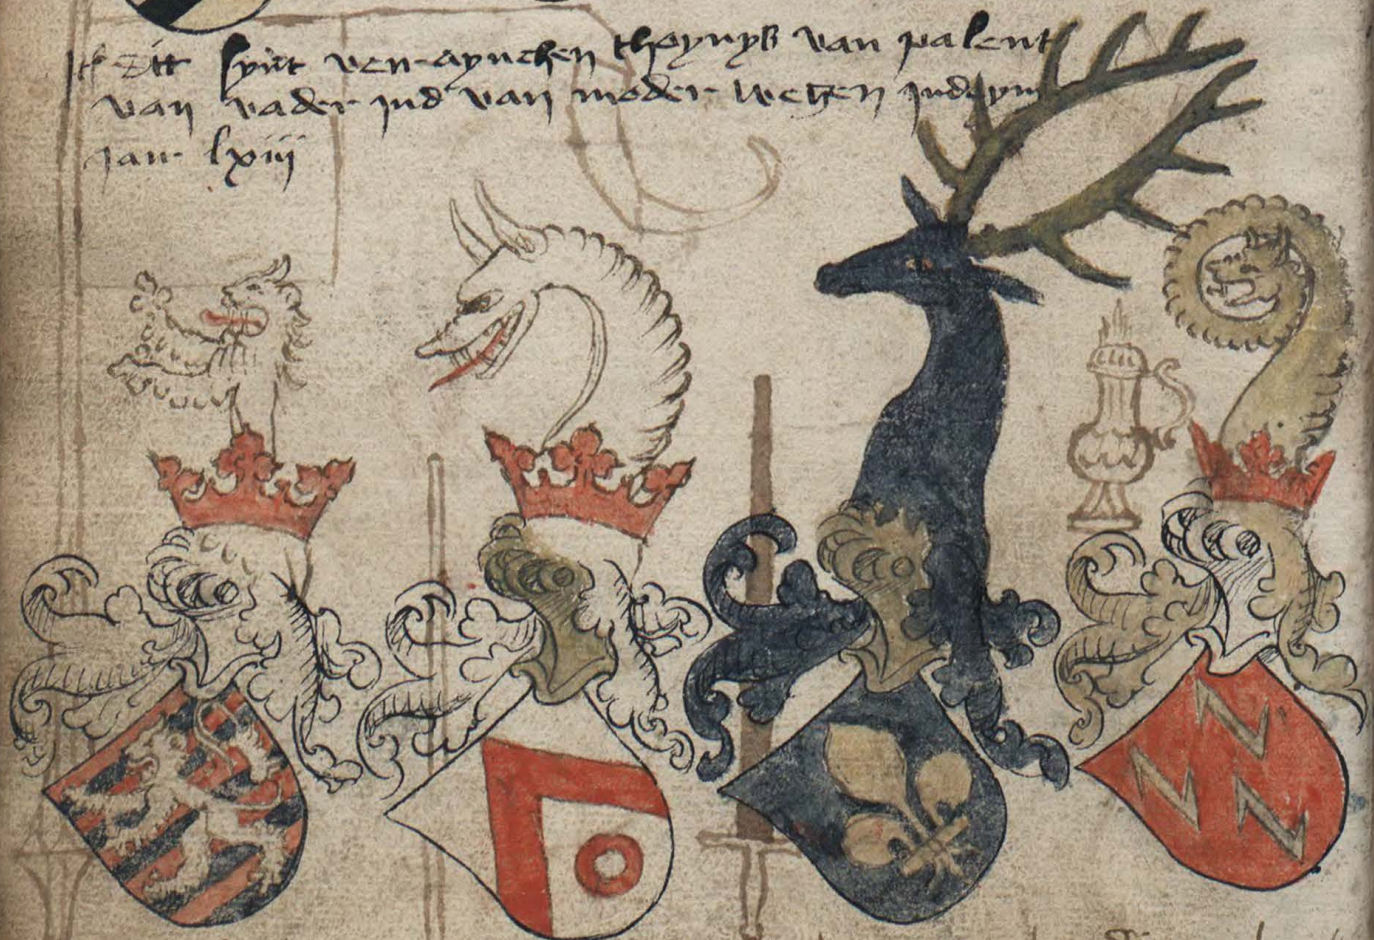 It Ditt synt ven aynchen thoynyß van palent
van vader ind van moder wegen ind ym
jair lxiii